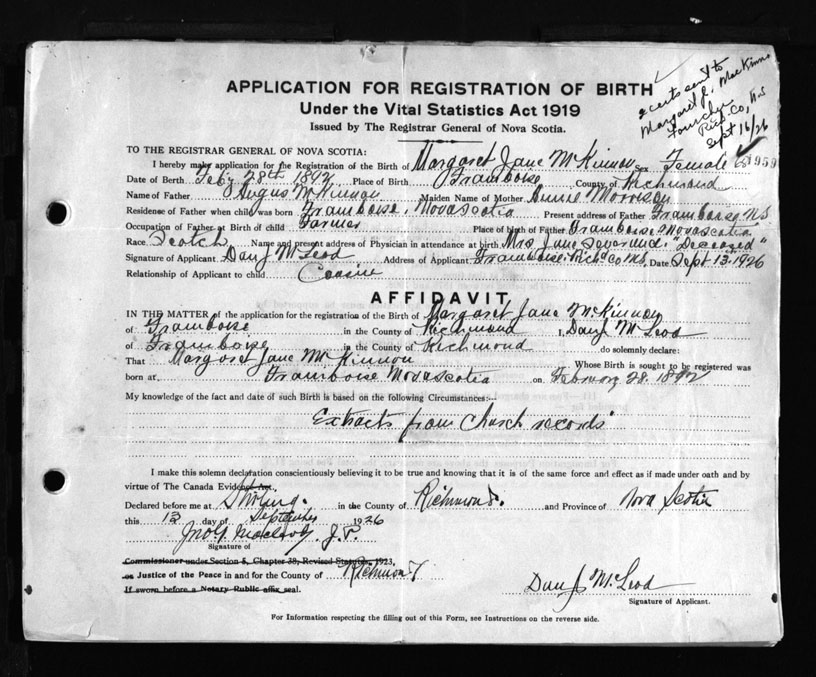 APPLICATION FOR REGISTRATION OF BIRTH
Under the Vital Statistics Act 1919
Issued by The Registrar General of Nova Scotia.
2 certs sent to
Margaret J. MacKinnon
Fourchu
Rich Co, N.S
Sept 16/26
TO THE REGISTRAR GENERAL OF NOVA SCOTIA:
I hereby make application for the Registration of the Birth of Margaret Jane McKinnon Sex Female
Date of Birth Feby 28th 1892 Place of Birth Framboise County of Richmond
Name of Father Angus McKinnon Maiden Name of Mother Annie Morrison
Residence of Father when child was born Framboise, Nova Scotia Present address of Father Framboise N.S.
Occupation of Father at Birth of child Farmer Place of birth of Father Framboise Nova Scotia
Race Scotch Name and present address of Physician in attendance at birth Mrs Jane "Deceased"
Signature of Applicant Dan J McLeod Address of Applicant Framboise Rich Co N.S. Date Sept 13. 1926
Relationship of Applicant to child Cousin
AFFIDAVIT
IN THE MATTER of the application for the registration of the Birth of Margaret Jane McKinnon
of Framboise in the County of Richmond I, Dan J McLeod
of Framboise in the County of Richmond do solemnly declare:
That Margaret Jane McKinnon Whose Birth is sought to be registered was
born at Framboise Nova Scotia on February 28. 1892
My knowledge of the fact and date of such Birth is based on the following Circumstances:—
"Extracts from Church records"
I make this solemn declaration conscientiously believing it to be true and knowing that it is of the same force and effect as if made under oath and by
virtue of The Canada Evidence Act.
Declared before me at Stirling. in the County of Richmond. and Province of Nova Scotia
this 13 day of September 1926
J.P.
Signature of
Commissioner under Section 5, Chapter 38, Revised Statutes, 1923,
or Justice of the Peace in and for the County of Richmond
If sworn before a Notary Public affix seal.
Dan J McLeod
Signature of Applicant.
For Information respecting the filling out of this Form, see Instructions on the reverse side.